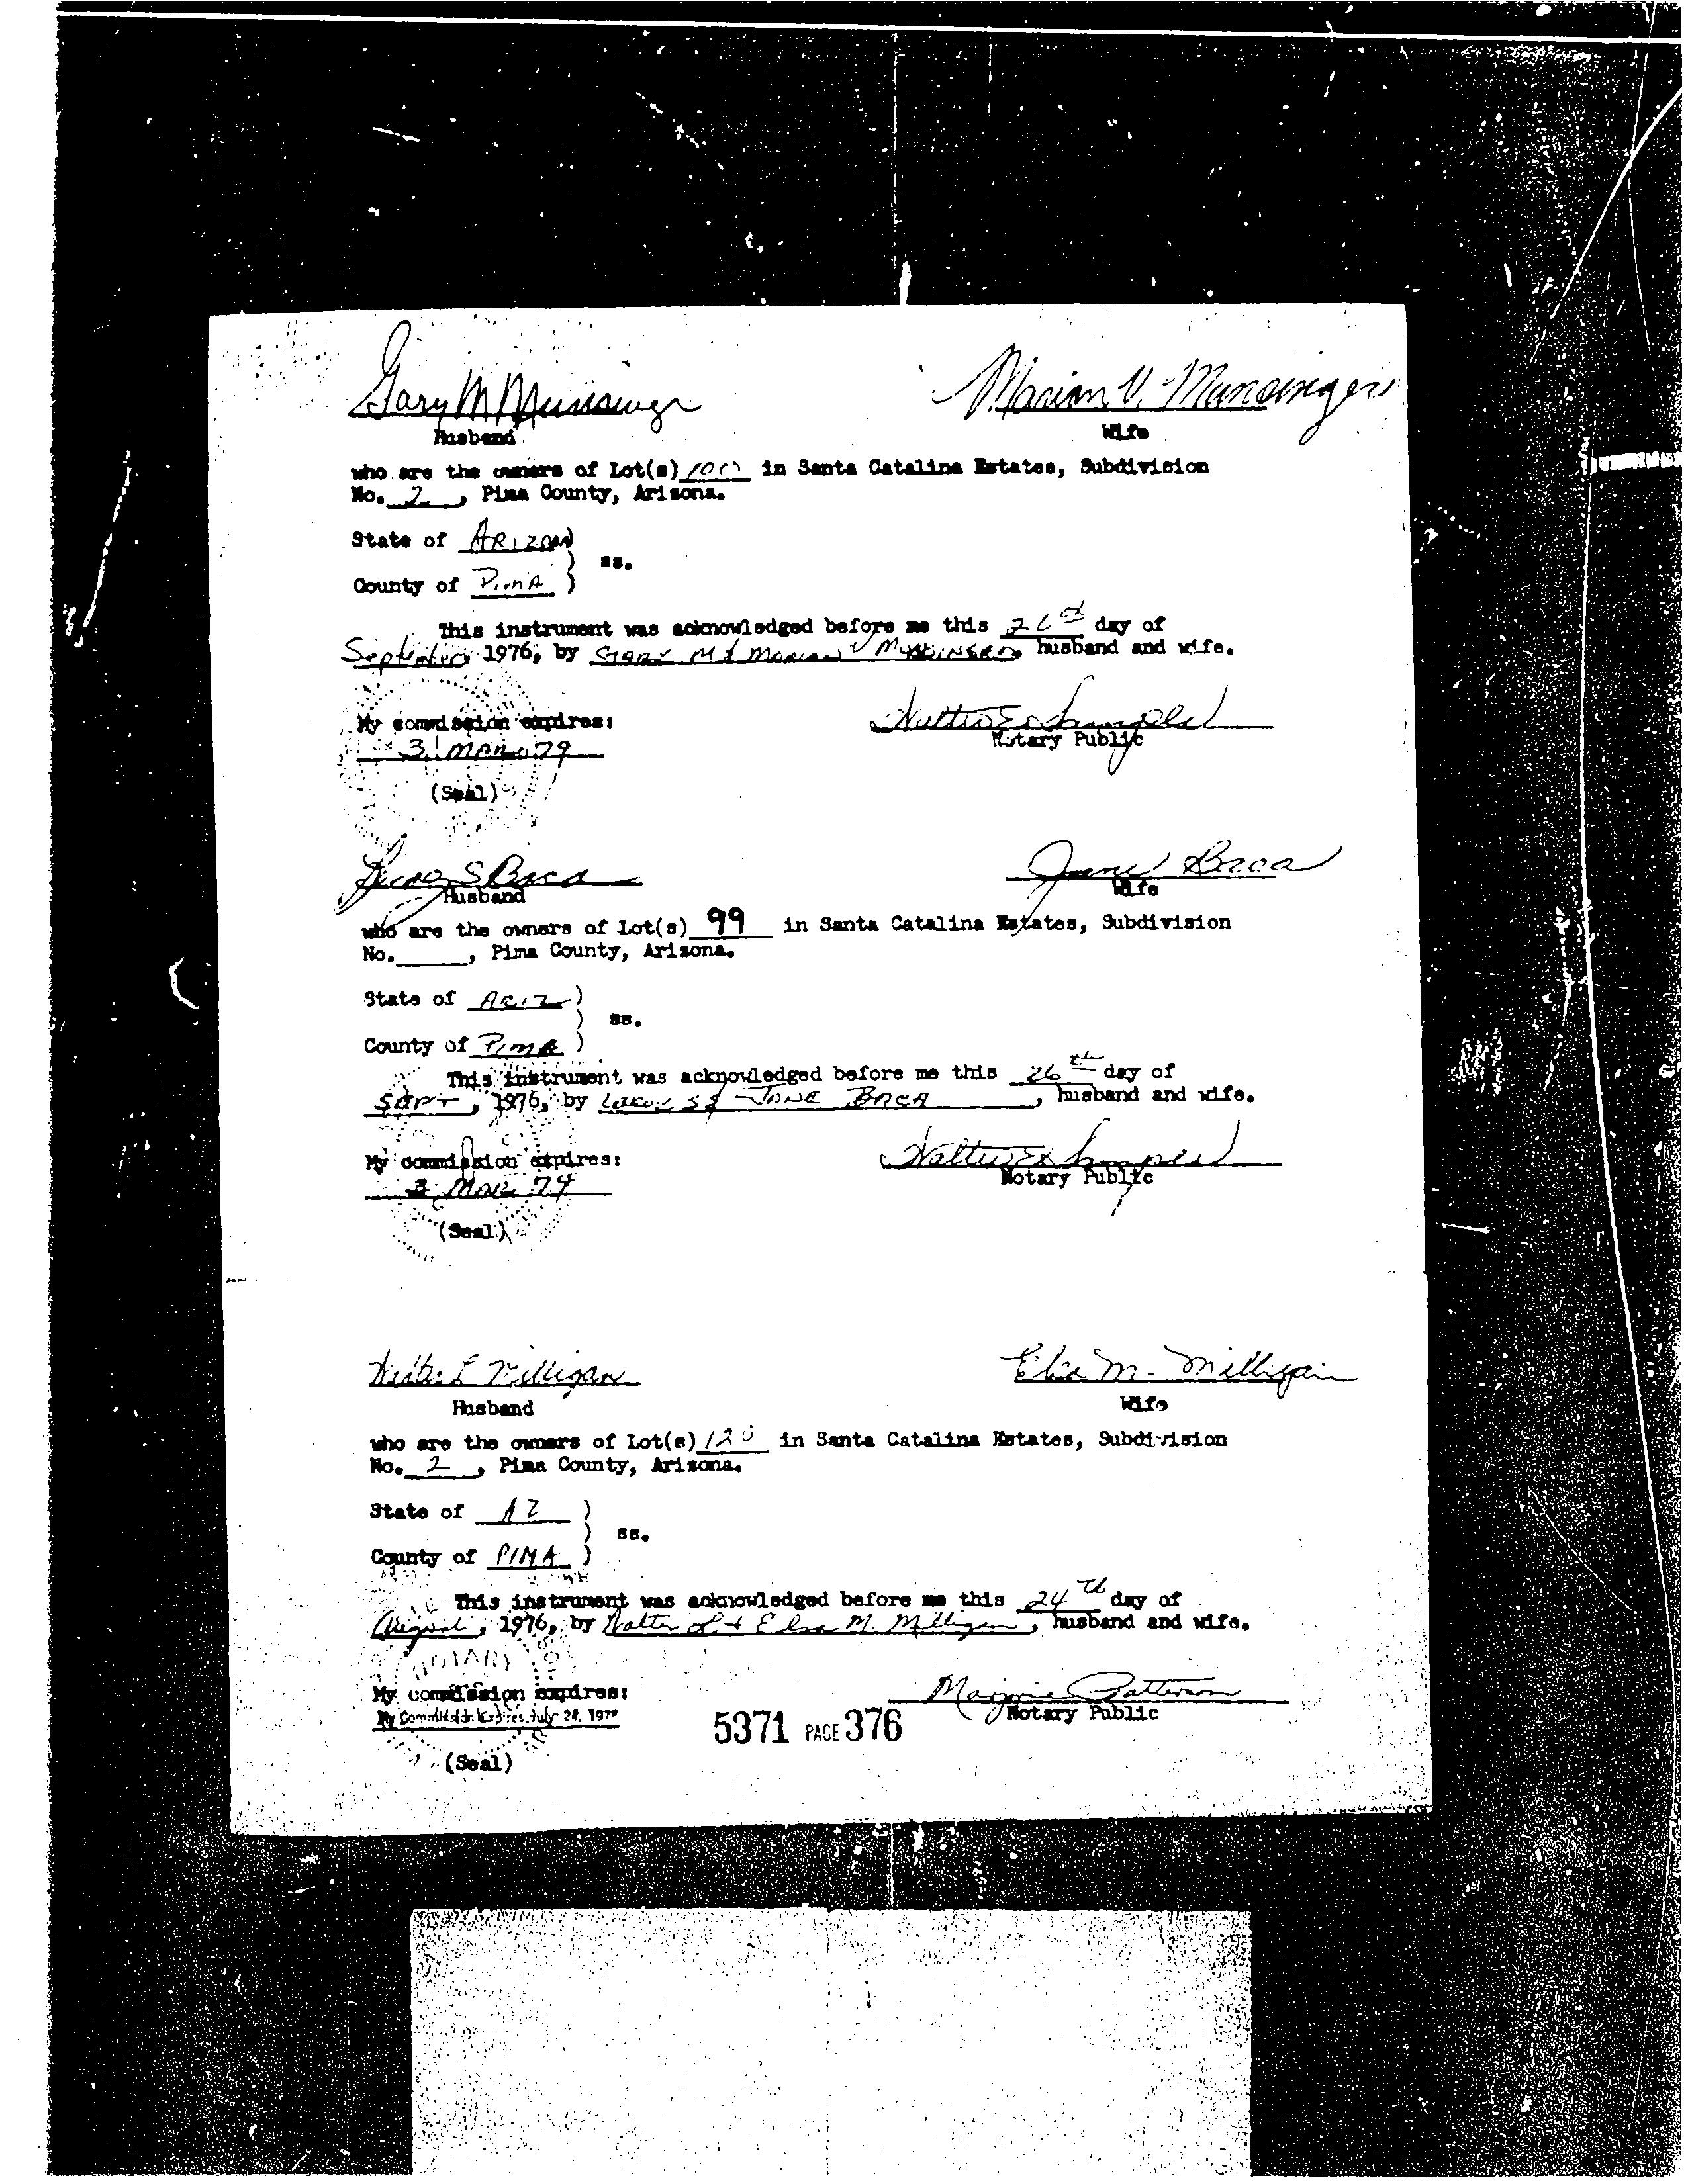 Gary M Munsinger Marian V. Munsinger
Husband Wife
who are the owners of Lot(s) 100 in Santa Catalina Estates, Subdivision
No. 2 , Pima County, Arizona.
State of ARIZONA )
) ss.
County of PIMA )
This instrument was acknowledged before me this 26th day of
September 1976, by GARY M & MARIAN V MUNSINGER, husband and wife.
My commission expires: Walter E
3 MAR 79 Notary Public
(Seal)
S Baca Jane Baca
Husband Wife
who are the owners of Lot(s) 99 in Santa Catalina Estates, Subdivision
No. , Pima County, Arizona.
State of ARIZ )
) ss.
County of PIMA )
This instrument was acknowledged before me this 26th day of
SEPT , 1976, by S & JANE BACA , husband and wife.
My commission expires: Walter E
3 MAR 79 Notary Public
(Seal)
Walter L Milligan Elsa M. Milligan
Husband Wife
who are the owners of Lot(s) 120 in Santa Catalina Estates, Subdivision
No. 2 , Pima County, Arizona.
State of AZ )
) ss.
County of PIMA )
This instrument was acknowledged before me this 24th day of
August , 1976, by Walter L. + Elsa M. Milligan , husband and wife.
NOTARY
My commission expires: Marjorie Patterson
My Commission Expires July 28, Notary Public
5371 PAGE 376
(Seal)